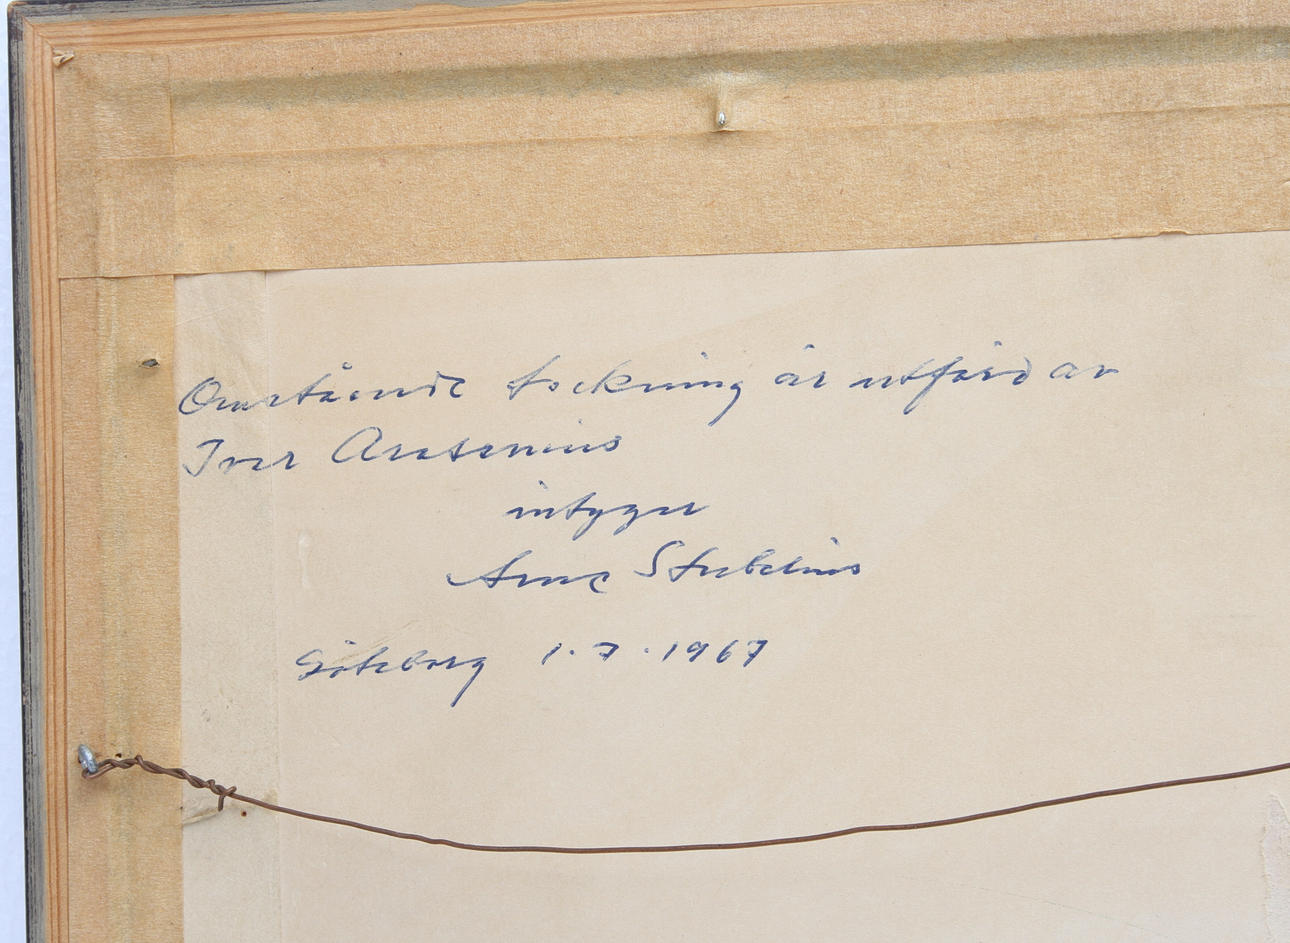 Omstående teckning är utförd av
Iver Arosenius
intygar
Arne Stubelius
Göteborg 1.7.1967